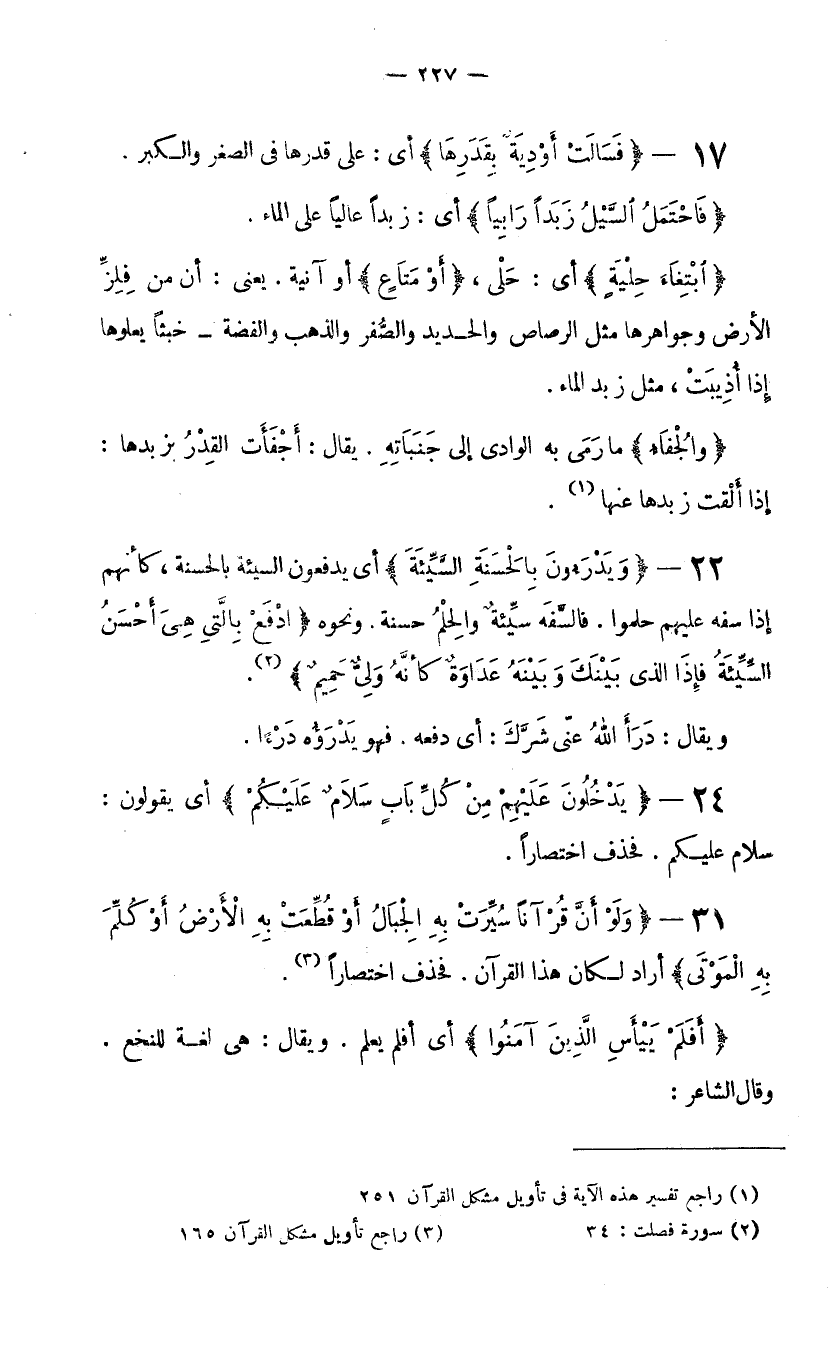 — ٢٢٧ —
١٧ — ﴿ فَسَالَتْ أَوْدِيَةٌ بِقَدَرِهَا ﴾ أى : على قدرها فى الصغر والكبر .
﴿ فَاحْتَمَلَ السَّيْلُ زَبَداً رَابِياً ﴾ أى : زبداً عالياً على الماء .
﴿ ٱبْتِغَاءَ حِلْيَةٍ ﴾ أى : حَلْى ، ﴿ أَوْ مَتَاعٍ ﴾ أو آنية . يعنى : أن من فِلِزِّ
الأرض وجواهرها مثل الرصاص والحديد والصُّفر والذهب والفضة – خبثاً يعلوها
إذا أُذِيبَتْ ، مثل زبد الماء .
﴿ والْجُفَاء ﴾ ما رَمَى به الوادى إلى جَنَبَاتِهِ . يقال : أَجْفَأَت القِدْرُ بزبدها :
إذا أَلْقت زبدها عنها (١) .
٢٢ — ﴿ وَيَدْرَءونَ بِالْحَسَنَةِ السَّيِّئَةَ ﴾ أى يدفعون السيئة بالحسنة ، كأنهم
إذا سفه عليهم حلموا . فالسَّفَه سيِّئةٌ والحِلْمُ حسنة . ونحوه ﴿ ادْفَعْ بِالَّتِي هِىَ أَحْسَنُ
السَّيِّئَةُ فإِذَا الذى بَيْنَكَ وَبَيْنَهُ عَدَاوَةٌ كأنَّهُ وَلِىٌّ حَمِيمٌ ﴾ (٢) .
ويقال : دَرَأَ اللهُ عنّى شَرَّكَ : أى دفعه . فهو يَدْرَؤُه دَرْءًا .
٢٤ — ﴿ يَدْخُلُونَ عَلَيْهِمْ مِنْ كُلِّ بَابٍ سَلَامٌ عَلَيْكُمْ ﴾ أى يقولون :
سلام عليكم . فحذف اختصاراً .
٣١ — ﴿ وَلَوْ أَنَّ قُرْآناً سُيِّرَتْ بِهِ الْجِبَالُ أَوْ قُطِّعَتْ بِهِ الْأَرْضُ أَوْ كُلِّمَ
بِهِ الْمَوْتَى ﴾ أراد لكان هذا القرآن . فحذف اختصاراً (٣) .
﴿ أَفَلَمْ يَيْأَسِ الَّذِينَ آمَنُوا ﴾ أى أفلم يعلم . ويقال : هى لغة للنخع .
وقال الشاعر :
(١) راجع تفسير هذه الآية فى تأويل مشكل القرآن ٢٥١
(٢) سورة فصلت : ٣٤ (٣) راجع تأويل مشكل القرآن ١٦٥